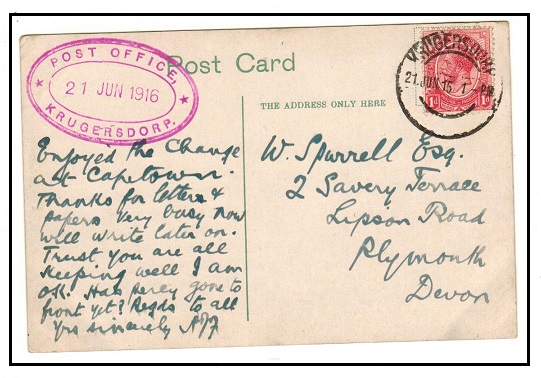 POST OFFICE,
21 JUN 1916
KRUGERSDORP.
Post Card
KRUGERSDORP
21.JUN.16.1 PM
1d 1d
THE ADDRESS ONLY HERE
Enjoyed the Change
at Capetown.
Thanks for letters &
papers Very busy now
will write later on.
Trust you are all
keeping well I am
OK. Has Percy gone to
front yet? Regds to all
yrs sincerely
W. Spurrell Esq.
2 Savery Terrace
Lipson Road
Plymouth
Devon